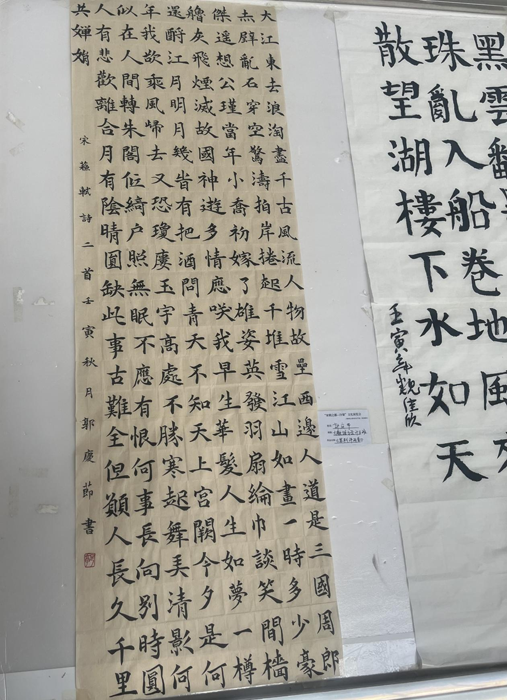 黑雲翻
珠亂入船卷地風來
散望湖樓下水如天
壬寅年魏佳欣
大江東去浪淘盡千古風流人物故壘西邊人道是三國周郎
赤壁亂石穿空驚濤拍岸捲起千堆雪江山如畫一時多少豪
傑遙想公瑾當年小喬初嫁了雄姿英發羽扇綸巾談笑間檣
艣灰飛煙滅故國神遊多情應咲我早生華髮人生如夢一樽
還酹江月明月幾旹有把酒問青天不知天上宮闕今夕是何
年我欲乘風歸去又恐瓊廔玉宇高處不勝寒起舞弄清影何
似在人間轉朱閣低綺户照無眠不應有恨何事長向別時圓
人有悲歡離合月有陰晴圓缺此事古難全但願人長久千里
共嬋娟
宋蘇軾詩二首壬寅秋月郭慶節書